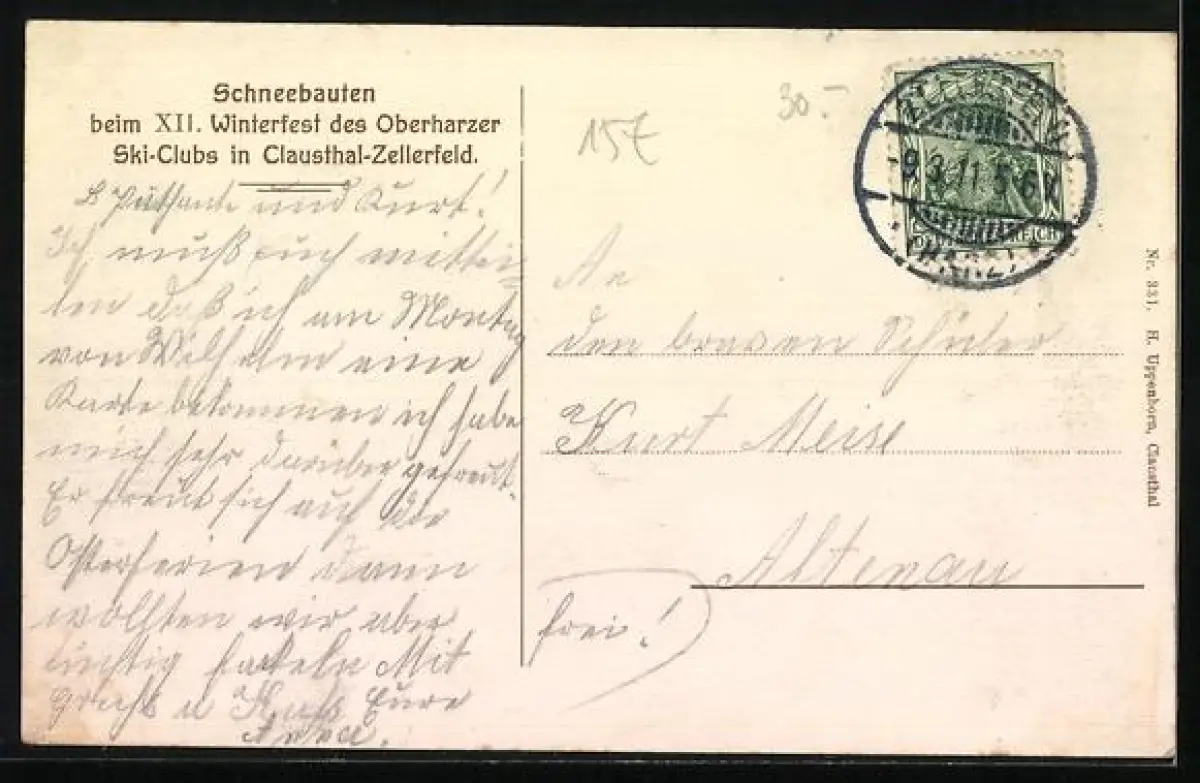 Schneebauten
beim XII. Winterfest des Oberharzer
Ski-Clubs in Clausthal-Zellerfeld.
und Kurt!
Ich muß euch mittei-
len daß ich am Montag
von Wilhelm eine
Karte bekommen ich habe
mich sehr darüber gefreut.
Er freut sich auf die
Osterferien dann
wollten wir aber
tüchtig Mit
Gruß u Kuß Eure
15€
30.-
9 3.11.5-6N
REICH
(HARZ)
An
den braven Schüler
Kurt Meise
Altenau
frei!
Nr. 331. H. Uppenborn, Clausthal